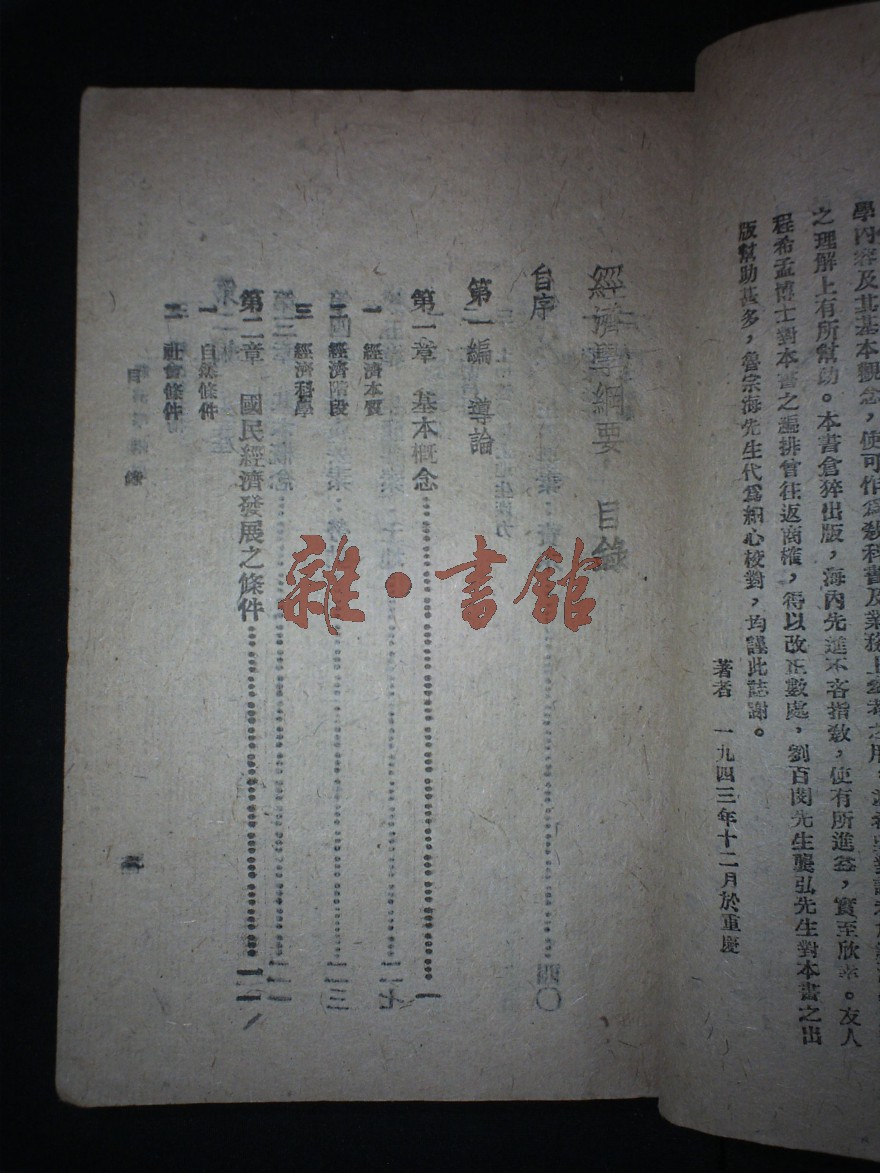 學內容及其基本觀念，使可作爲教科書及業務上參考之用，
之理解上有所幫助。本書倉猝出版，海內先進不吝指敎，使有所進益，實至欣幸。友人
程希孟博士對本書之編排曾往返商榷，得以改正數處，劉百閔先生龔弘先生對本書之出
版幫助甚多，魯宗海先生代爲細心校對，均謹此誌謝。
著者 一九四三年十二月於重慶
經濟學綱要 目錄
自序
第一編 導論
第一章 基本概念………一
一 經濟本質
二 經濟階段
三 經濟科學
第二章 國民經濟發展之條件………
一 自然條件
二 社會條件
目錄
一
雜·書館